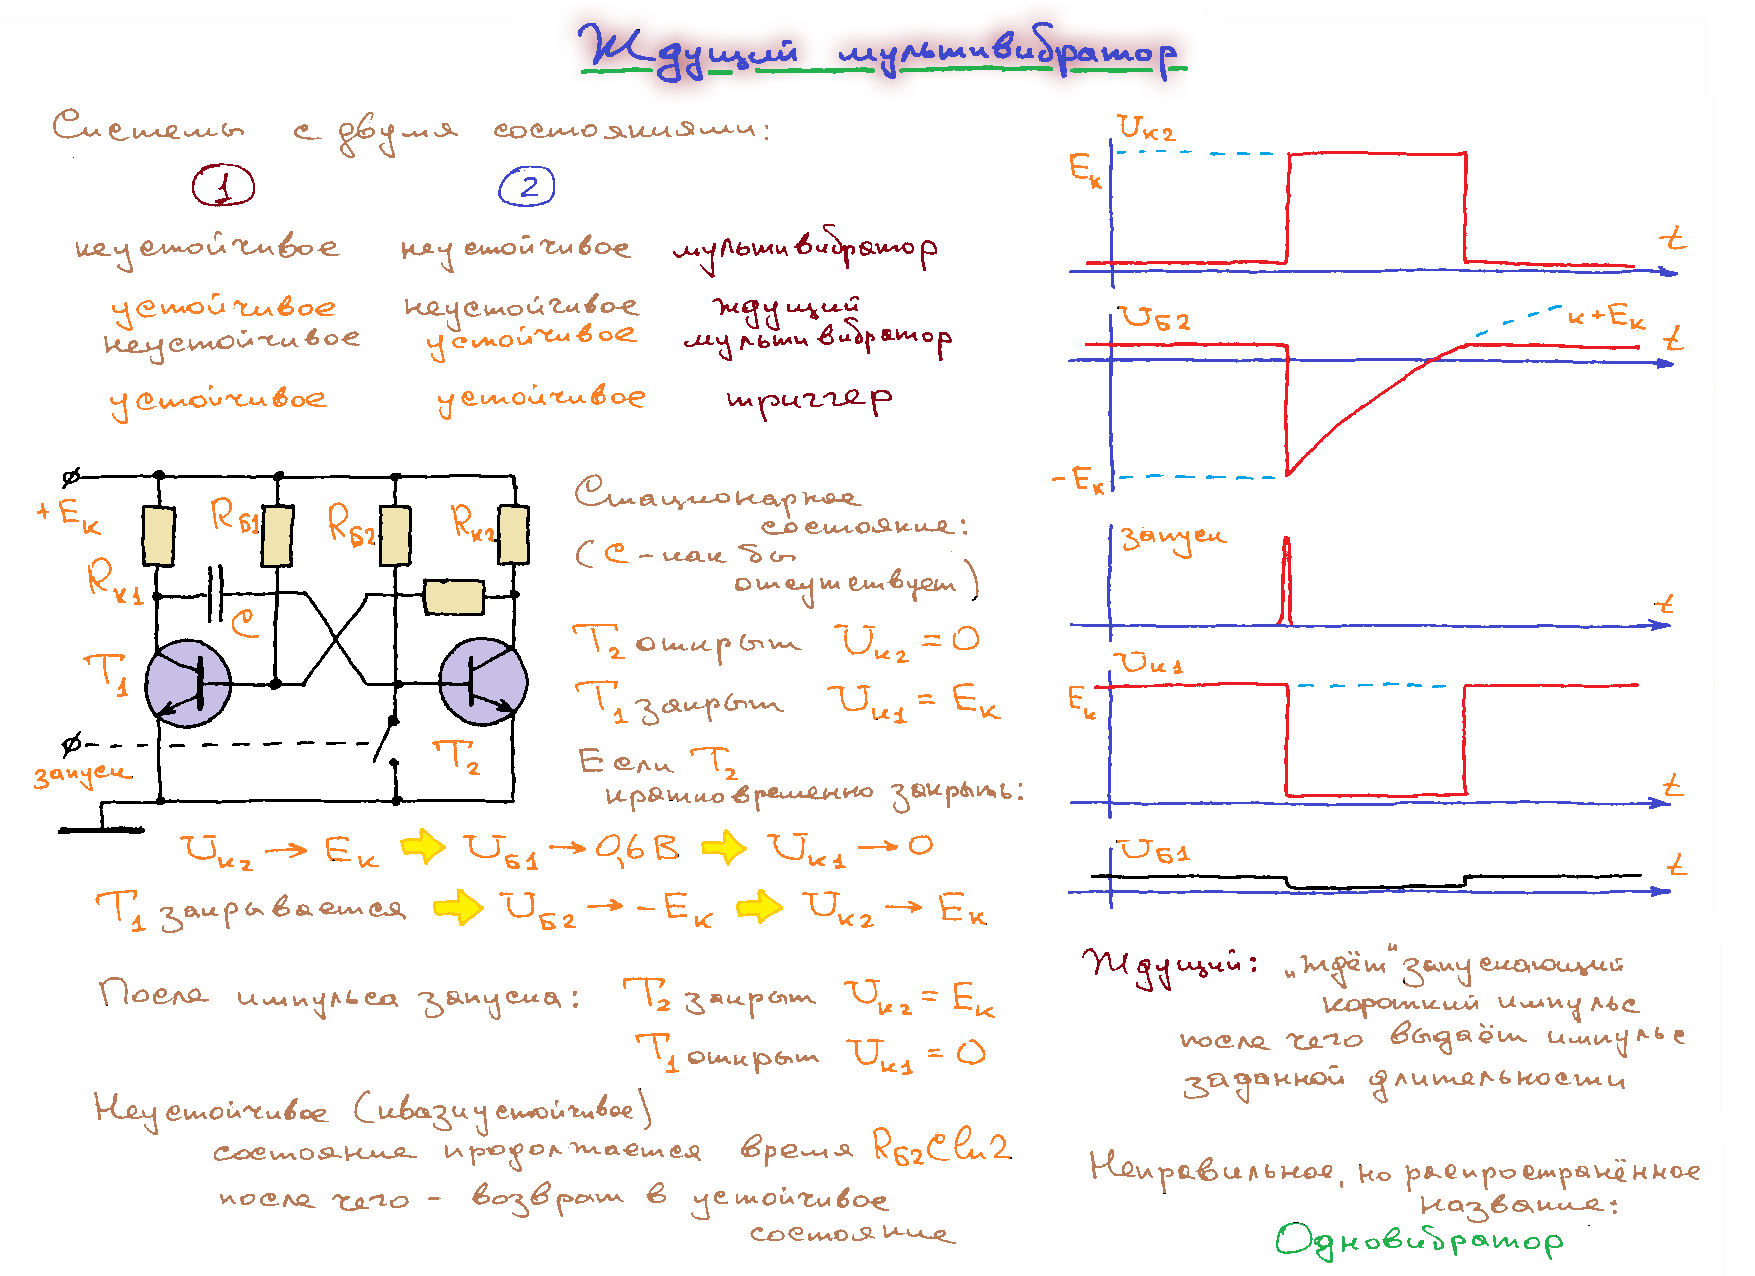 Ждущий мультивибратор
Системы с двумя состояниями:
1 2
неустойчивое неустойчивое мультивибратор
устойчивое неустойчивое ждущий
неустойчивое устойчивое мультивибратор
устойчивое устойчивое триггер
+Eк
Rк1
RБ1
RБ2
Rк2
C
T1
T2
запуск
Стационарное
состояние:
(C - как бы
отсутствует)
T2 открыт Uк2 = 0
T1 закрыт Uк1 = Eк
Если T2
кратковременно закрыть:
Uк2 → Eк ⇒ UБ1 → 0,6В ⇒ Uк1 → 0
T1 закрывается ⇒ UБ2 → -Eк ⇒ Uк2 → Eк
После импульса запуска: T2 закрыт Uк2 = Eк
T1 открыт Uк1 = 0
Неустойчивое (квазиустойчивое)
состояние продолжается время RБ2Cln2
после чего - возврат в устойчивое
состояние
Uк2
Eк
t
UБ2
к +Eк
t
-Eк
запуск
t
Uк1
Eк
t
UБ1
t
Ждущий: „ждёт“ запускающий
короткий импульс
после чего выдаёт импульс
заданной длительности
Неправильное, но распространённое
название:
Одновибратор